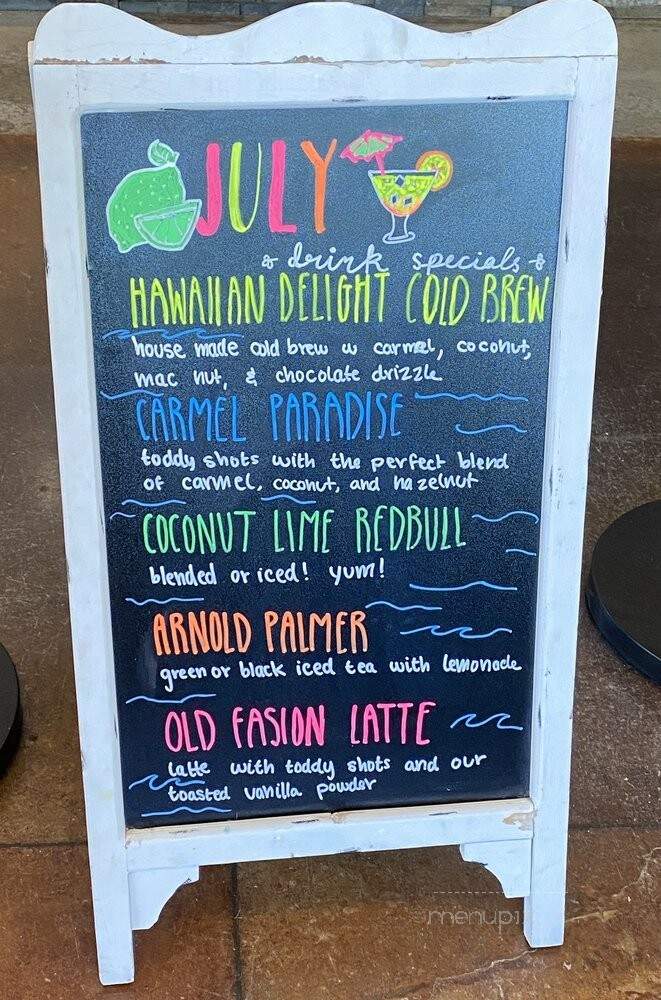 JULY
drink specials
HAWAIIAN DELIGHT COLD BREW
house made cold brew w carmel, coconut,
mac nut, & chocolate drizzle
CARMEL PARADISE
toddy shots with the perfect blend
of carmel, coconut, and hazelnut
COCONUT LIME REDBULL
blended or iced! yum!
ARNOLD PALMER
green or black iced tea with lemonade
OLD FASION LATTE
latte with toddy shots and our
toasted vanilla powder
menupix